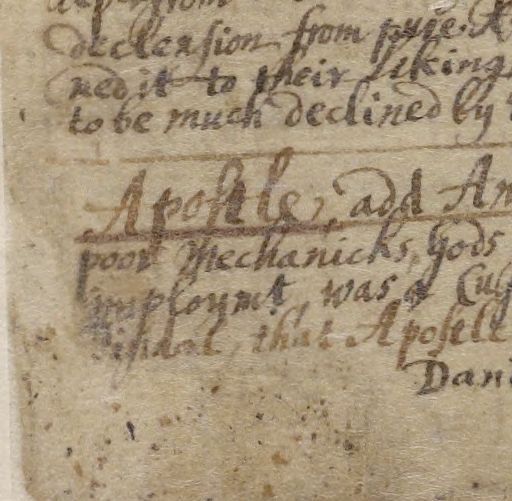 declension from pure
ned it to their likings
to be much declined by
Apostle, add Am
poor Mechanicks, Gods
imploymt, was a
that Apostle
Dani